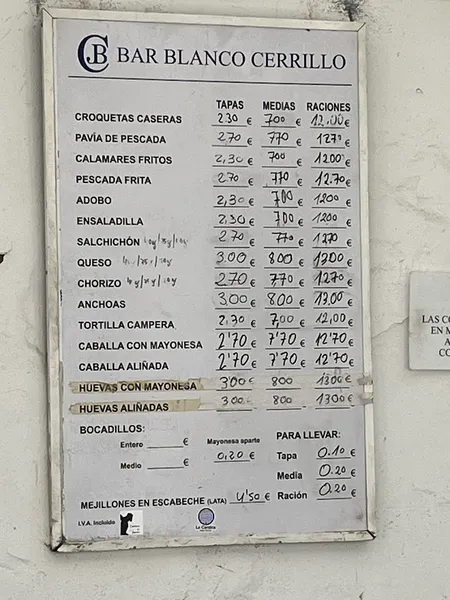 CJB BAR BLANCO CERRILLO
TAPAS MEDIAS RACIONES
CROQUETAS CASERAS 2.30 € 700 € 12.00 €
PAVÍA DE PESCADA 2.70 € 770 € 1270 €
CALAMARES FRITOS 2,30 € 700 € 1200 €
PESCADA FRITA 2.70 € 770 € 12.70 €
ADOBO 2,30 € 700 € 1200 €
ENSALADILLA 2,30 € 700 € 1200 €
SALCHICHÓN 2.70 € 770 € 1270 €
QUESO 3.00 € 800 € 1300 €
CHORIZO 2.70 € 770 € 1270 €
ANCHOAS 3,00 € 800 € 1300 €
TORTILLA CAMPERA 2,30 € 7,00 € 12,00 €
CABALLA CON MAYONESA 2'70 € 7'70 € 12'70 €
CABALLA ALIÑADA 2'70 € 7'70 € 12'70 €
HUEVAS CON MAYONESA 3'00 € 800 1300 €
HUEVAS ALIÑADAS 3.00 € 800 1300 €
BOCADILLOS:
Entero € Mayonesa aparte
Medio € 0,20 €
PARA LLEVAR:
Tapa 0.10 €
Media 0.20 €
Ración 0.20 €
MEJILLONES EN ESCABECHE (LATA) 4'50 €
I.V.A. Incluido
LAS CO
EN M
A
CO